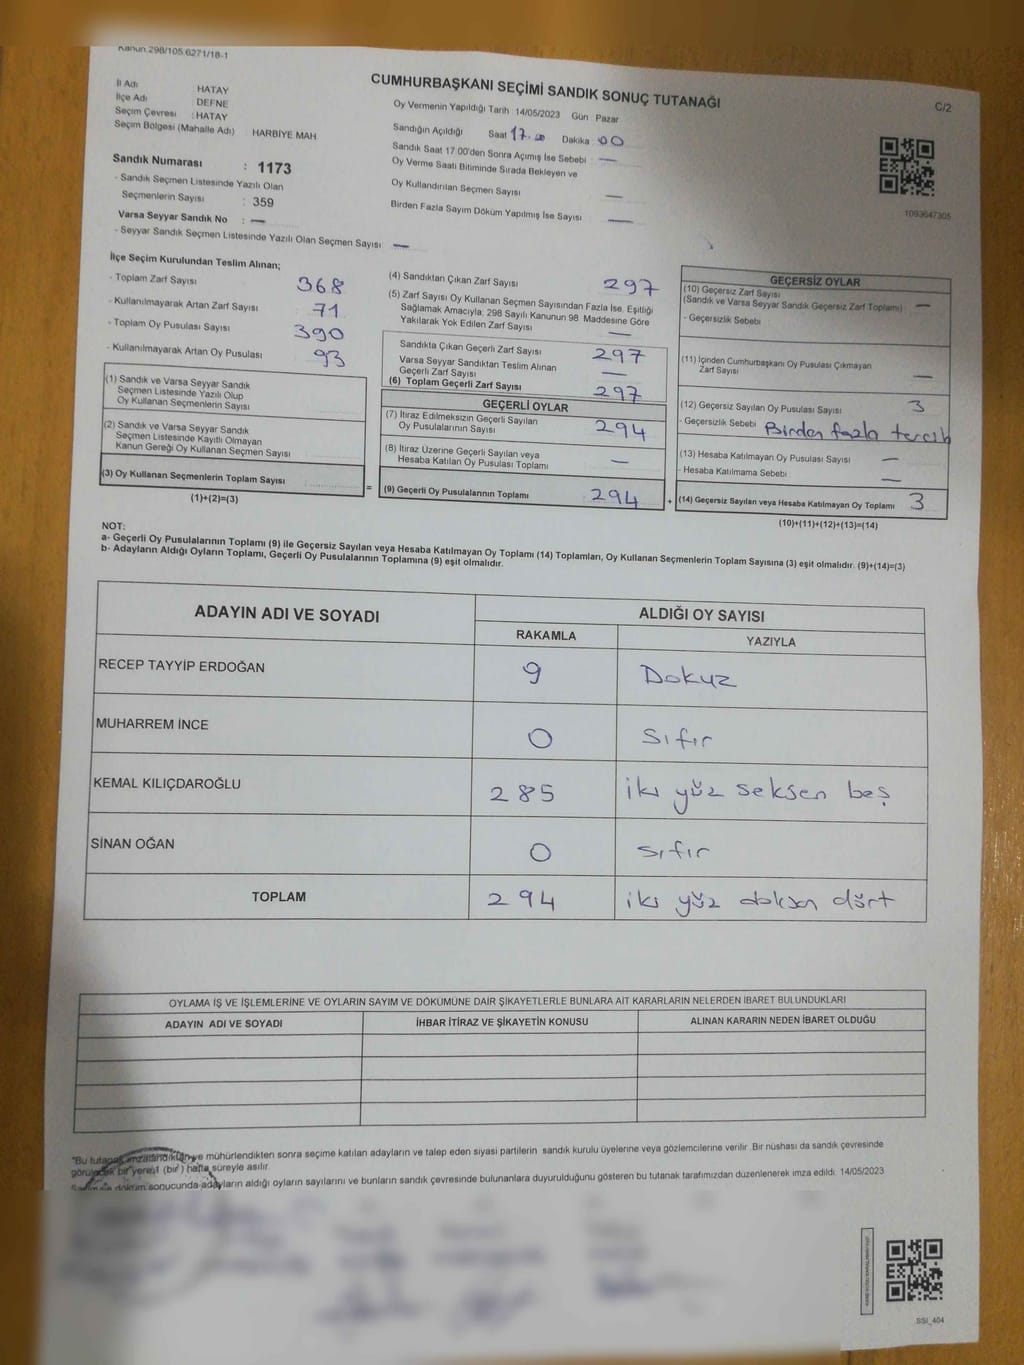 Kanun 298/105 6271/18-1
CUMHURBAŞKANI SEÇİMİ SANDIK SONUÇ TUTANAĞI
C/2
İl Adı HATAY
İlçe Adı DEFNE
Seçim Çevresi : HATAY
Seçim Bölgesi (Mahalle Adı) : HARBİYE MAH
Sandık Numarası : 1173
- Sandık Seçmen Listesinde Yazılı Olan
Seçmenlerin Sayısı : 359
Varsa Seyyar Sandık No : —
- Seyyar Sandık Seçmen Listesinde Yazılı Olan Seçmen Sayısı —
Oy Vermenin Yapıldığı Tarih : 14/05/2023 Gün : Pazar
Sandığın Açıldığı Saat 17.00 Dakika : 00
Sandık Saat 17:00'den Sonra Açımış İse Sebebi —
Oy Verme Saati Bitiminde Sırada Bekleyen ve
Oy Kullandırılan Seçmen Sayısı —
Birden Fazla Sayım Döküm Yapılmış İse Sayısı —
1093647305
İlçe Seçim Kurulundan Teslim Alınan;
- Toplam Zarf Sayısı 368
- Kullanılmayarak Artan Zarf Sayısı 71
- Toplam Oy Pusulası Sayısı 390
- Kullanılmayarak Artan Oy Pusulası 93
(1) Sandık ve Varsa Seyyar Sandık
Seçmen Listesinde Yazılı Olup
Oy Kullanan Seçmenlerin Sayısı
(2) Sandık ve Varsa Seyyar Sandık
Seçmen Listesinde Kayıtlı Olmayan
Kanun Gereği Oy Kullanan Seçmen Sayısı
(3) Oy Kullanan Seçmenlerin Toplam Sayısı
(1)+(2)=(3)
=
(4) Sandıktan Çıkan Zarf Sayısı 297
(5) Zarf Sayısı Oy Kullanan Seçmen Sayısından Fazla İse, Eşitliği
Sağlamak Amacıyla; 298 Sayılı Kanunun 98. Maddesine Göre
Yakılarak Yok Edilen Zarf Sayısı —
Sandıkta Çıkan Geçerli Zarf Sayısı 297
Varsa Seyyar Sandıktan Teslim Alınan
Geçerli Zarf Sayısı —
(6) Toplam Geçerli Zarf Sayısı 297
GEÇERLİ OYLAR
(7) İtiraz Edilmeksizin Geçerli Sayılan
Oy Pusulalarının Sayısı 294
(8) İtiraz Üzerine Geçerli Sayılan veya
Hesaba Katılan Oy Pusulası Toplamı —
(9) Geçerli Oy Pusulalarının Toplamı 294
+
GEÇERSİZ OYLAR
(10) Geçersiz Zarf Sayısı
(Sandık ve Varsa Seyyar Sandık Geçersiz Zarf Toplamı) —
- Geçersizlik Sebebi
(11) İçinden Cumhurbaşkanı Oy Pusulası Çıkmayan
Zarf Sayısı —
(12) Geçersiz Sayılan Oy Pusulası Sayısı 3
- Geçersizlik Sebebi Birden fazla tercih
(13) Hesaba Katılmayan Oy Pusulası Sayısı —
- Hesaba Katılmama Sebebi —
(14) Geçersiz Sayılan veya Hesaba Katılmayan Oy Toplamı 3
(10)+(11)+(12)+(13)=(14)
NOT:
a- Geçerli Oy Pusulalarının Toplamı (9) ile Geçersiz Sayılan veya Hesaba Katılmayan Oy Toplamı (14) Toplamları, Oy Kullanan Seçmenlerin Toplam Sayısına (3) eşit olmalıdır. (9)+(14)=(3)
b- Adayların Aldığı Oyların Toplamı, Geçerli Oy Pusulalarının Toplamına (9) eşit olmalıdır.
ADAYIN ADI VE SOYADI ALDIĞI OY SAYISI
RAKAMLA YAZIYLA
RECEP TAYYİP ERDOĞAN 9 Dokuz
MUHARREM İNCE 0 Sıfır
KEMAL KILIÇDAROĞLU 285 iki yüz seksen beş
SİNAN OĞAN 0 sıfır
TOPLAM 294 iki yüz doksan dört
OYLAMA İŞ VE İŞLEMLERİNE VE OYLARIN SAYIM VE DÖKÜMÜNE DAİR ŞİKAYETLERLE BUNLARA AİT KARARLARIN NELERDEN İBARET BULUNDUKLARI
ADAYIN ADI VE SOYADI İHBAR İTİRAZ VE ŞİKAYETİN KONUSU ALINAN KARARIN NEDEN İBARET OLDUĞU
"Bu tutanak imzalandıktan ve mühürlendikten sonra seçime katılan adayların ve talep eden siyasi partilerin sandık kurulu üyelerine veya gözlemcilerine verilir. Bir nüshası da sandık çevresinde
görülecek bir yere 1 (bir) hafta süreyle asılır.
döküm sonucunda adayların aldığı oyların sayılarını ve bunların sandık çevresinde bulunanlara duyurulduğunu gösteren bu tutanak tarafımızdan düzenlenerek imza edildi. 14/05/2023
SSI_404